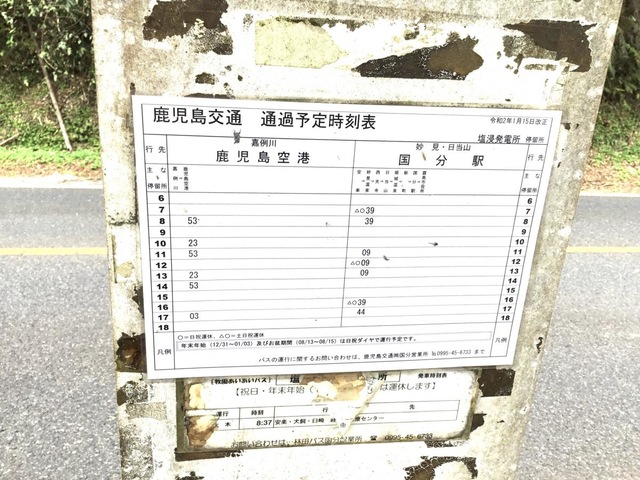 鹿児島交通　通過予定時刻表
令和2年1月15日改正
塩浸発電所
行先 嘉例川 鹿児島空港 妙見・日当山 国分駅 行先
主な停留所 嘉例川 鹿児島空港 主な停留所
6 6
7 △○39 7
8 53 39 8
9 9
10 23 10
11 53 09 11
12 △○09 12
13 23 09 13
14 53 14
15 15
16 △○39 16
17 03 44 17
18 18
凡例 ○=日祝運休、△○=土日祝運休 凡例
年末年始（12/31～01/03）及びお盆期間（08/13～08/15）は日祝ダイヤで運行予定です。
バスの運行に関するお問い合わせは、鹿児島交通㈱国分営業所 ℡0995-45-6733 まで
【牧園あいあいバス】 塩 所 発車時刻表
【祝日・年末年始（ は運休します】
運行 時刻 行 先
木 8:37 安楽・犬飼・ センター
由
お問い合わせは、林田バス国分営業所 ☎ 0995-45-6733